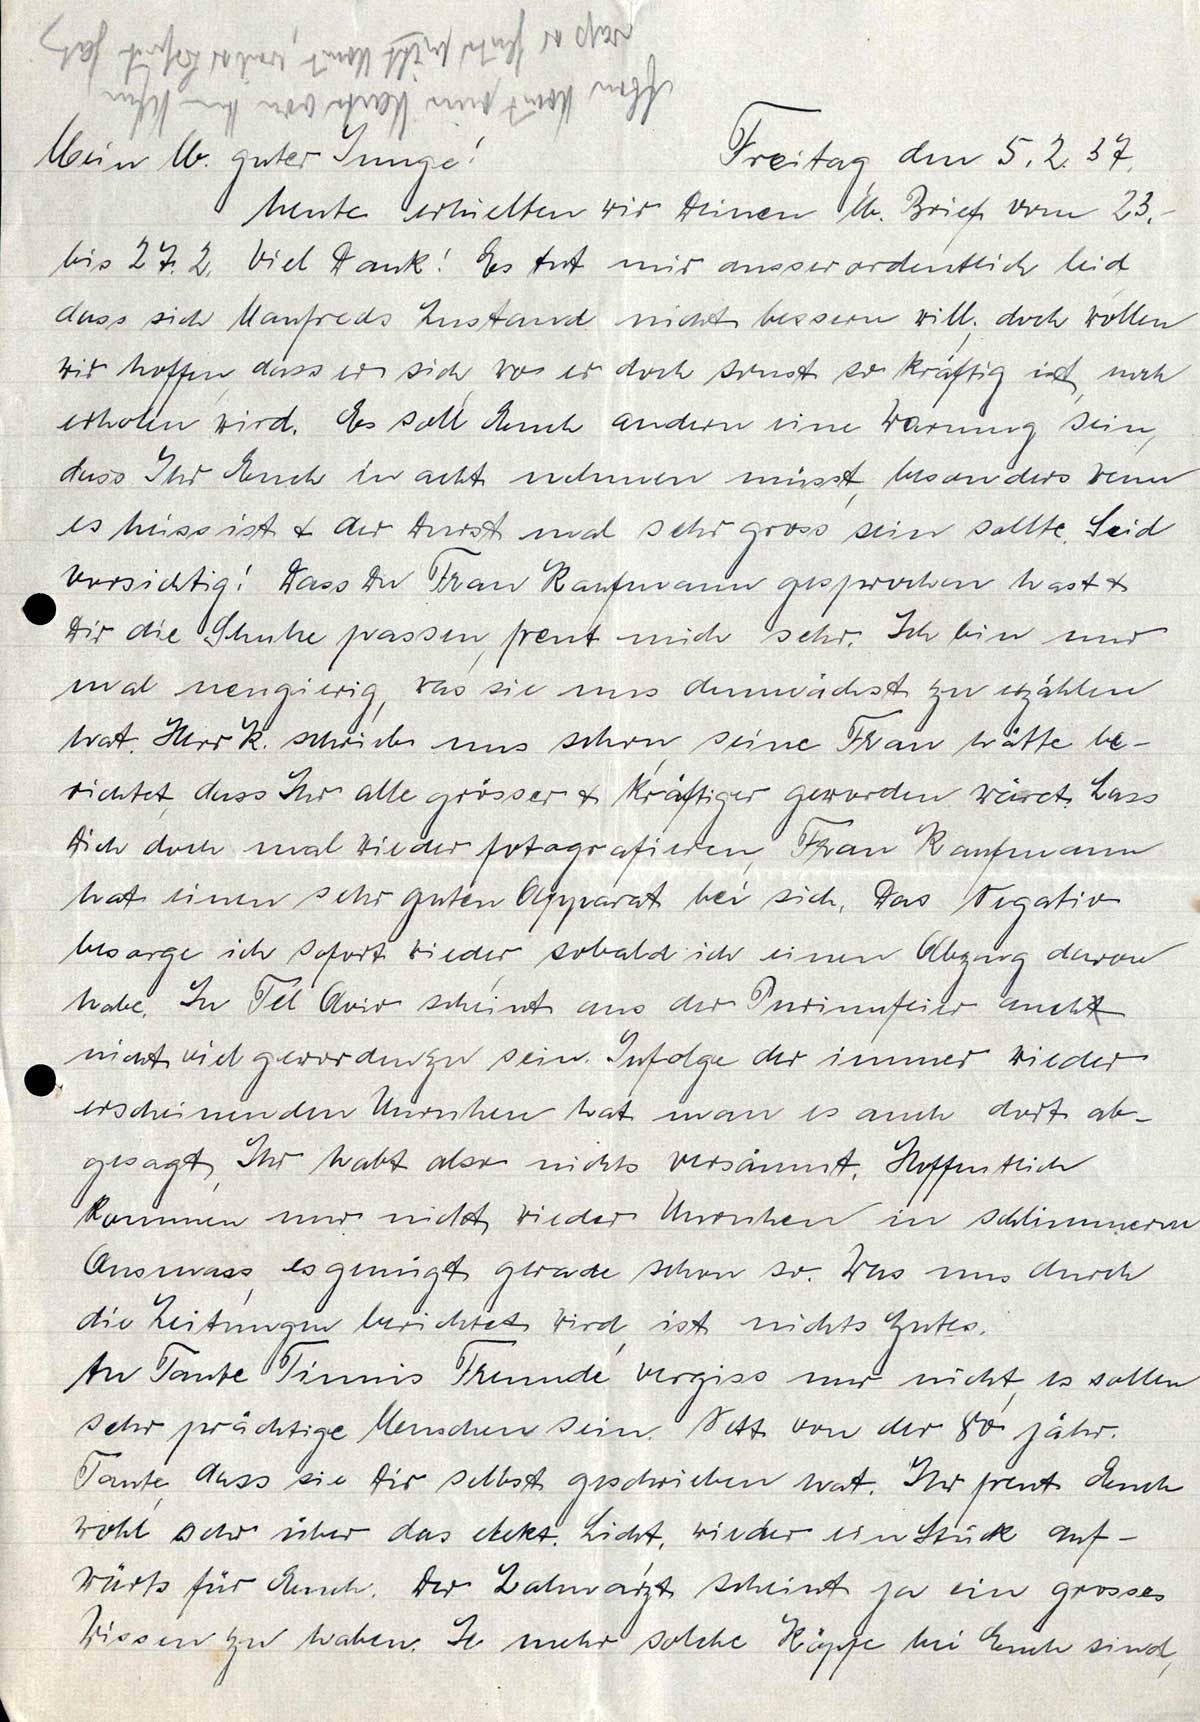 Mein lb. guter Junge!
Freitag den 5.2.37.
heute erhielten wir Deinen lb. Brief vom 23.-
bis 27.2. Viel Dank! Es tut mir ausserordentlich leid
dass sich Manfreds Zustand nicht bessern will, doch wollen
wir hoffen, dass er sich, wo er doch sonst so kräftig ist, noch
erholen wird. Es soll Euch andern eine Warnung sein,
dass Ihr Euch in acht nehmen müsst, besonders wenn
es heiss ist & der Durst mal sehr gross sein sollte. Seid
vorsichtig! Dass Du Frau Kaufmann gesprochen hast &
Dir die Schuhe passen, freut mich sehr. Ich bin nur
mal neugierig, was sie uns demnächst zu erzählen
hat. Herr K. schrieb uns schon, seine Frau hätte be-
richtet, dass Ihr alle grösser & kräftiger geworden wäret. Lass
Dich doch mal wieder fotografieren, Frau Kaufmann
hat einen sehr guten Apparat bei sich. Das Negativ
besorge ich sofort wieder sobald ich einen Abzug davon
habe. In Tel Aviv scheint aus der Purimfeier auch
nicht viel geworden zu sein. Infolge der immer wieder
erscheinenden Unruhen hat man es auch dort ab-
gesagt, Ihr habt also nichts versäumt. Hoffentlich
kommen nur nicht wieder Unruhen in schlimmerem
Ausmass, es genügt gerade schon so. Was uns durch
die Zeitungen berichtet wird, ist nichts Gutes.
An Tante Timnis Freunde vergiss nur nicht, es sollen
sehr prächtige Menschen sein. Nett von der 80 jähr.
Tante, dass sie Dir selbst geschrieben hat. Ihr freut Euch
wohl sehr über das elekt. Licht, wieder ein Stück auf-
wärts für Euch. Der Zahnarzt scheint ja ein grosses
Wissen zu haben. Je mehr solche Köpfe bei Euch sind,